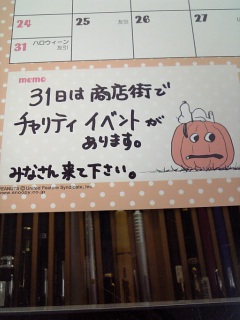 24 25 26 27
友引
31 ハロウィーン
友引
memo
31日は商店街で
チャリティイベントが
あります。
みなさん来て下さい。
PEANUTS © United Feature Syndicate, Inc.